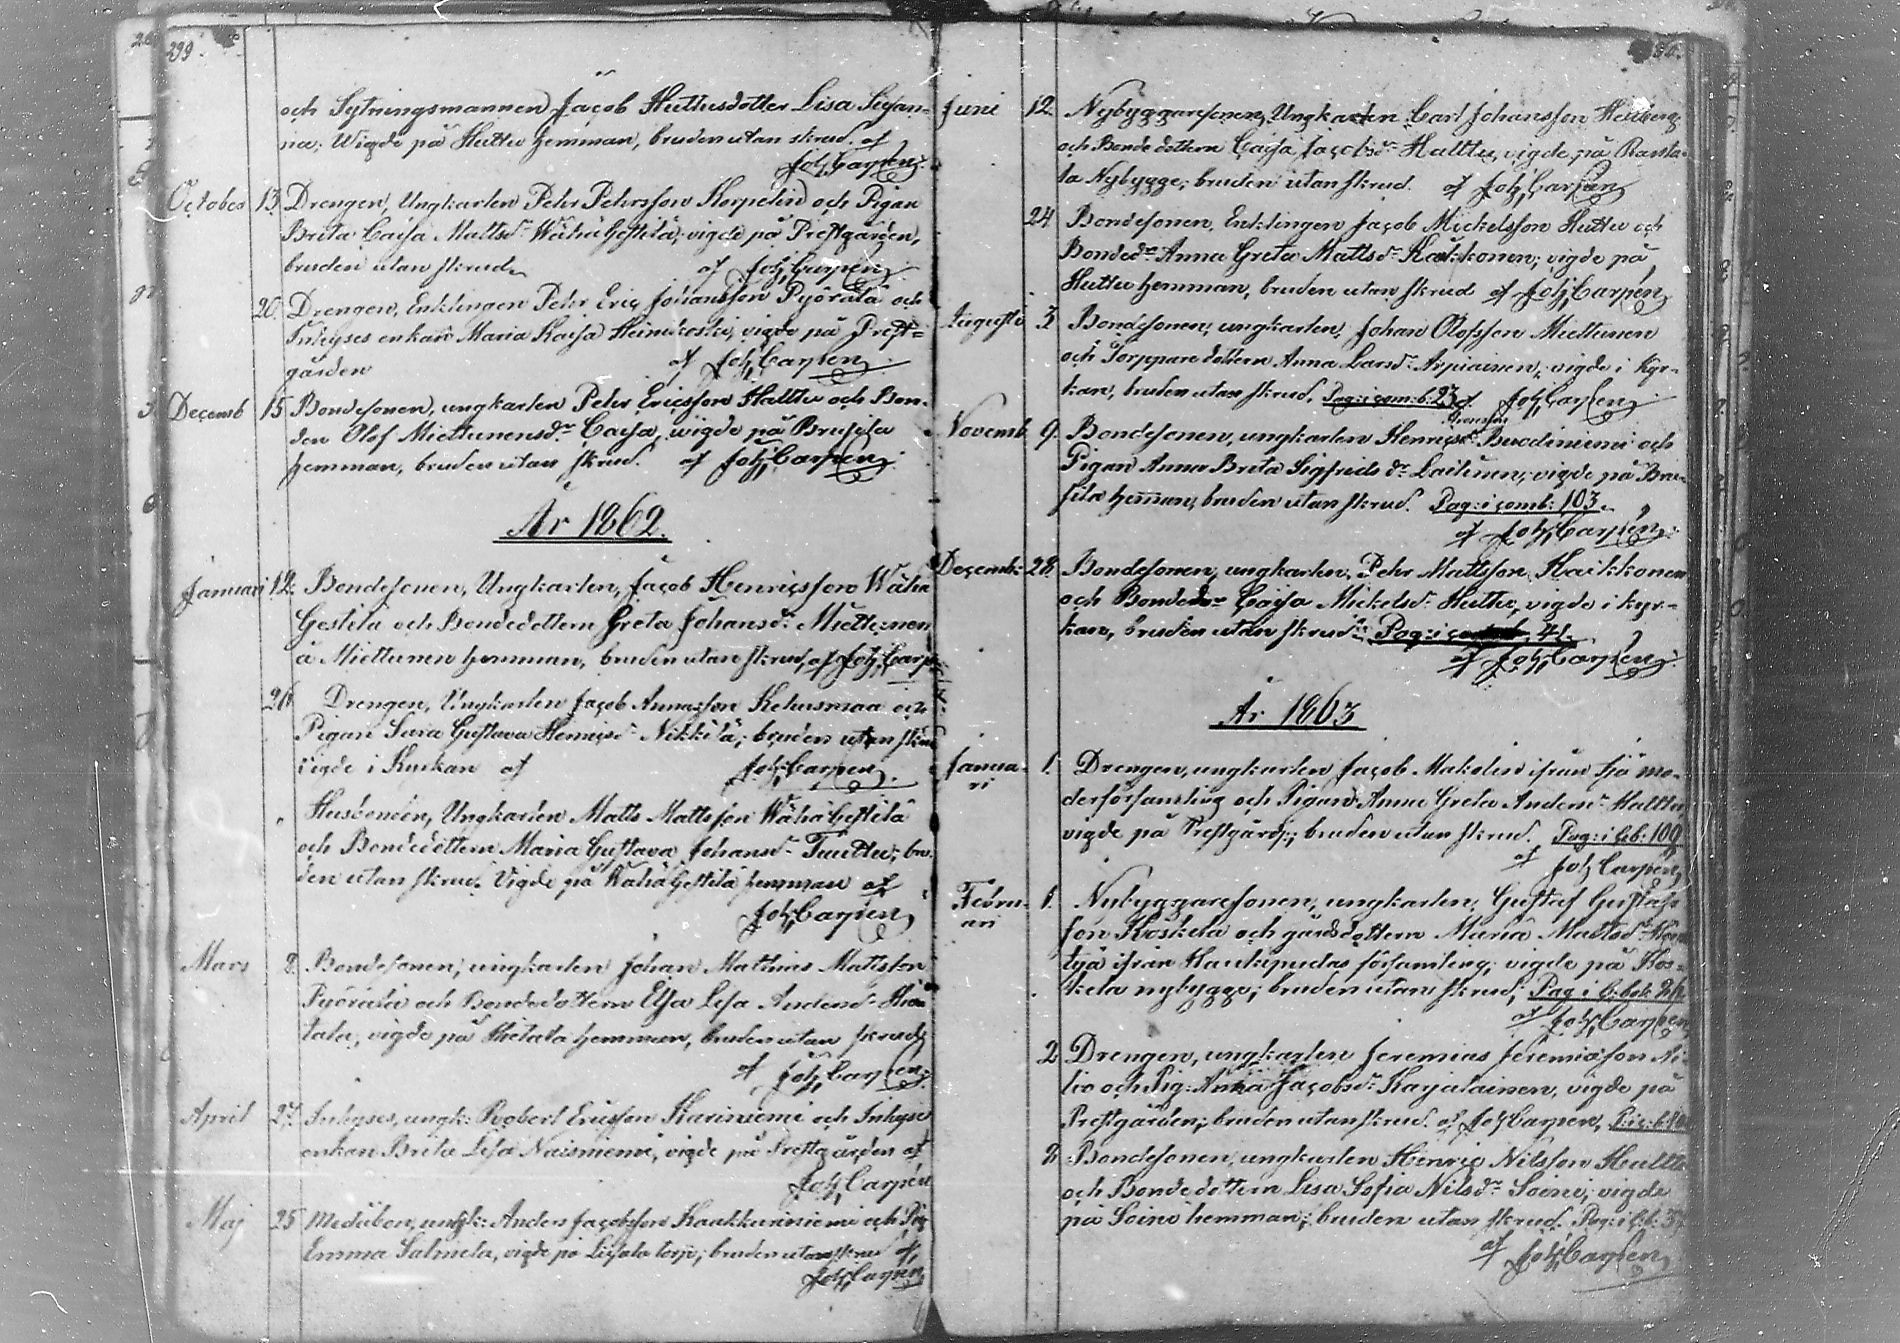 299
och Sytningsmannen Jacob Huttusdotter Lisa Susan-
na; Wigde på Huttu hemman, bruden utan skrud. af
Joh. Carpén.
October 13. Drengen, Ungkarlen Pehr Pehrsson Korpelin och Pigan
Brita Caisa Mattsdr WähäHeftilä; vigde på Prestgården,
bruden utan skrud, af Joh. Carpén.
20. Drengen, Enklingen Pehr Eric Johansson Pyörälä och
Inhyses enkan Maria Kaisa Heinikoski, vigde på Prest-
gården af Joh. Carpén
Decemb 15. Bondesonen, ungkarlen Pehr Ericsson Halttu och Bon-
den Olof Miettunensdr Caisa, wigde på Brusila
hemman, bruden utan skrud. af Joh. Carpén.
År 1862.
Januari 12. Bondesonen, Ungkarlen, Jacob Henricsson Wähä
Gestilä och Bondedottern Greta Johansdr Miettunen
å Miettunen hemman, bruden utan skrud, af Joh. Carp
26 Drengen, Ungkarlen Jacob Annasson Kehusmaa och
Pigan Sara Gustava Henricsdr Nikkilä; bruden utan skrud
vigde i Kyrkan af Joh. Carpén.
" Husbonden, Ungkarlen Matts Mattsson WähäGestilä
och Bondedottern Maria Gustava Johansdr Tuuttu; bru-
den utan skrud. Vigde på WähäGestilä hemman af
Joh. Carpén
Mars 8. Bondesonen, ungkarlen Johan Mathias Mattsson
Pyörälä och Bondedottern Elsa Lisa Andersdr Hie-
tala, vigde på Hietala hemman, bruden utan skrud,
af Joh. Carpén.
April 27. Inhyses, ungk: Robert Ericsson Kariniemi och Inhyses
enkan Brita Lisa Naisniemi, vigde på Prestgården af
Joh. Carpén
Maj 25 Medübon, ungk: Anders Jacobsson Kaakkuriniemi och Pig
Emma Salmela, vigde på Lisala torp; bruden utan skrud af
Joh. Carpén
Juni 12. Nybyggaresonen, Ungkarlen Carl Johansson Heikerg
och Bondedottern Caisa Jacobsdr Halttu, vigde på Rasta-
la Nybygge; bruden utan skrud. af Joh. Carpén
24 Bondesonen, Enklingen Jacob Mickelsson Huttu och
Bondedr Anna Greta Mattsdr Kaikkonen; vigde på
Huttu hemman, bruden utan skrud af Joh. Carpén
Augusti 3. Bondesonen, ungkarlen, Johan Olofsson Miettunen
och Torppare dottern Anna Larsdr Arpiainen, vigde i Kyr-
kan, bruden utan skrud. Pag: i com: b: 23 af Joh. Carpén.
Novemb 9. Bondesonen, ungkarlen Henric Buodiniemi och
Pigan Anna Brita Sigfridsdr Laitinen; vigde på Bru-
sila hemman, bruden utan skrud. Pag: i comb: 103.
af Joh. Carpén.
Decemb: 28. Bondesonen, ungkarlen, Pehr Mattsson Kaikkonen
och Bondedr Caisa Mickelsdr Huttu, vigde i kyr-
kan, bruden utan skrud. Pag: i 41.
af Joh. Carpén.
År 1863
Janua- 1. Drengen, ungkarlen Jacob Makelin ifrån Ijo mo-
ri derförsamling och Pigan Anna Greta Andersdr Halttu,
vigde på Prestgård; bruden utan skrud. Pag: i b:b: 109
af Joh. Carpén
Febru- 1. Nybyggaresonen, ungkarlen, Gustaf Gustafs-
ari son Koskela och gårdsdottern Maria Mattsdr
ifrån Haukipudas församling; vigde på Kos-
kela nybygge; bruden utan skrud; Pag i b:bok
af Joh. Carpén
2 Drengen, ungkarlen Jeremias Jeremiasson Ni-
lio och Pig: Anna Jacobsdr Karjalainen, vigde på
Prestgården; bruden utan skrud. af Joh. Carpén,
2. Bondesonen, ungkarlen Henric Nilsson Hultto
och Bondedottern Lisa Sofia Nilsdr Soini, vigde
på Soini hemman; bruden utan skrud. Pag: i b:b: 37.
af Joh. Carpén